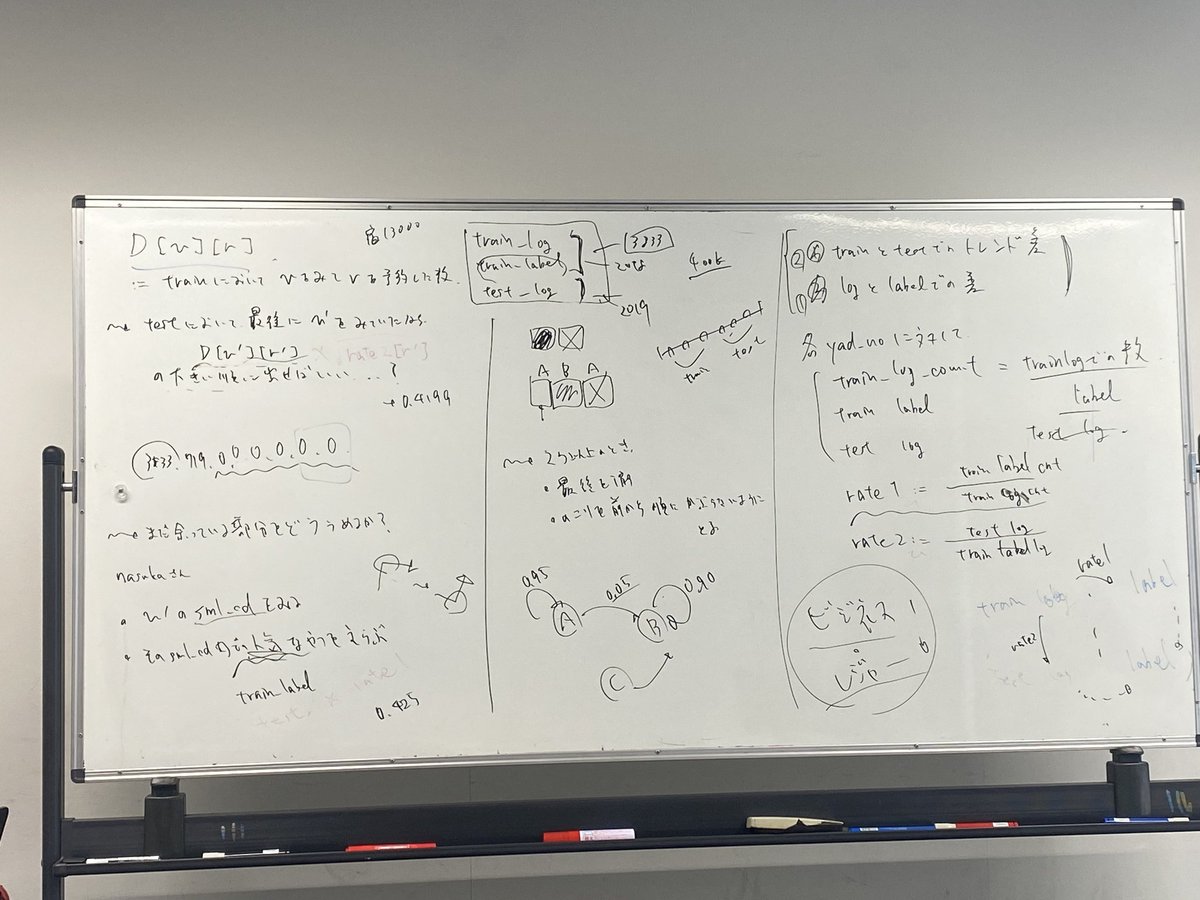 D[v][r]
宿13000
:= trainにおいて vをみてrを予約した数
〜 testにおいて最後にv'をみていたなら
D[v'][r'] × rate2[r']
の大きい順に出せばいい...?
→0.4199
3833, 719, 0, 0, 0, 0, 0, 0
〜 まだ余っている部分をどううめるか?
nasukaさん
• v'の sml_cd をみる
• そのsml_cd内の人気なやつをえらぶ
train_label
0.425
train_log
train_label
test_log
3833
2018
2019
400k
train
test
A B A
〜 2つ以上のとき
• 最後を1個
• のこりを前から順にかぶらないように
とる
0.95
0.05
0.90
A
B
C
② train と test でのトレンド差
① log と label での差
各 yad_no に対して
train_log_count = trainlogでの数
train label
label
test log
test log
rate1 := train label cnt
train log cnt
rate2 := test log
train label log
ビジネス 1
レジャー 0
rate1
train log
label
rate2
label